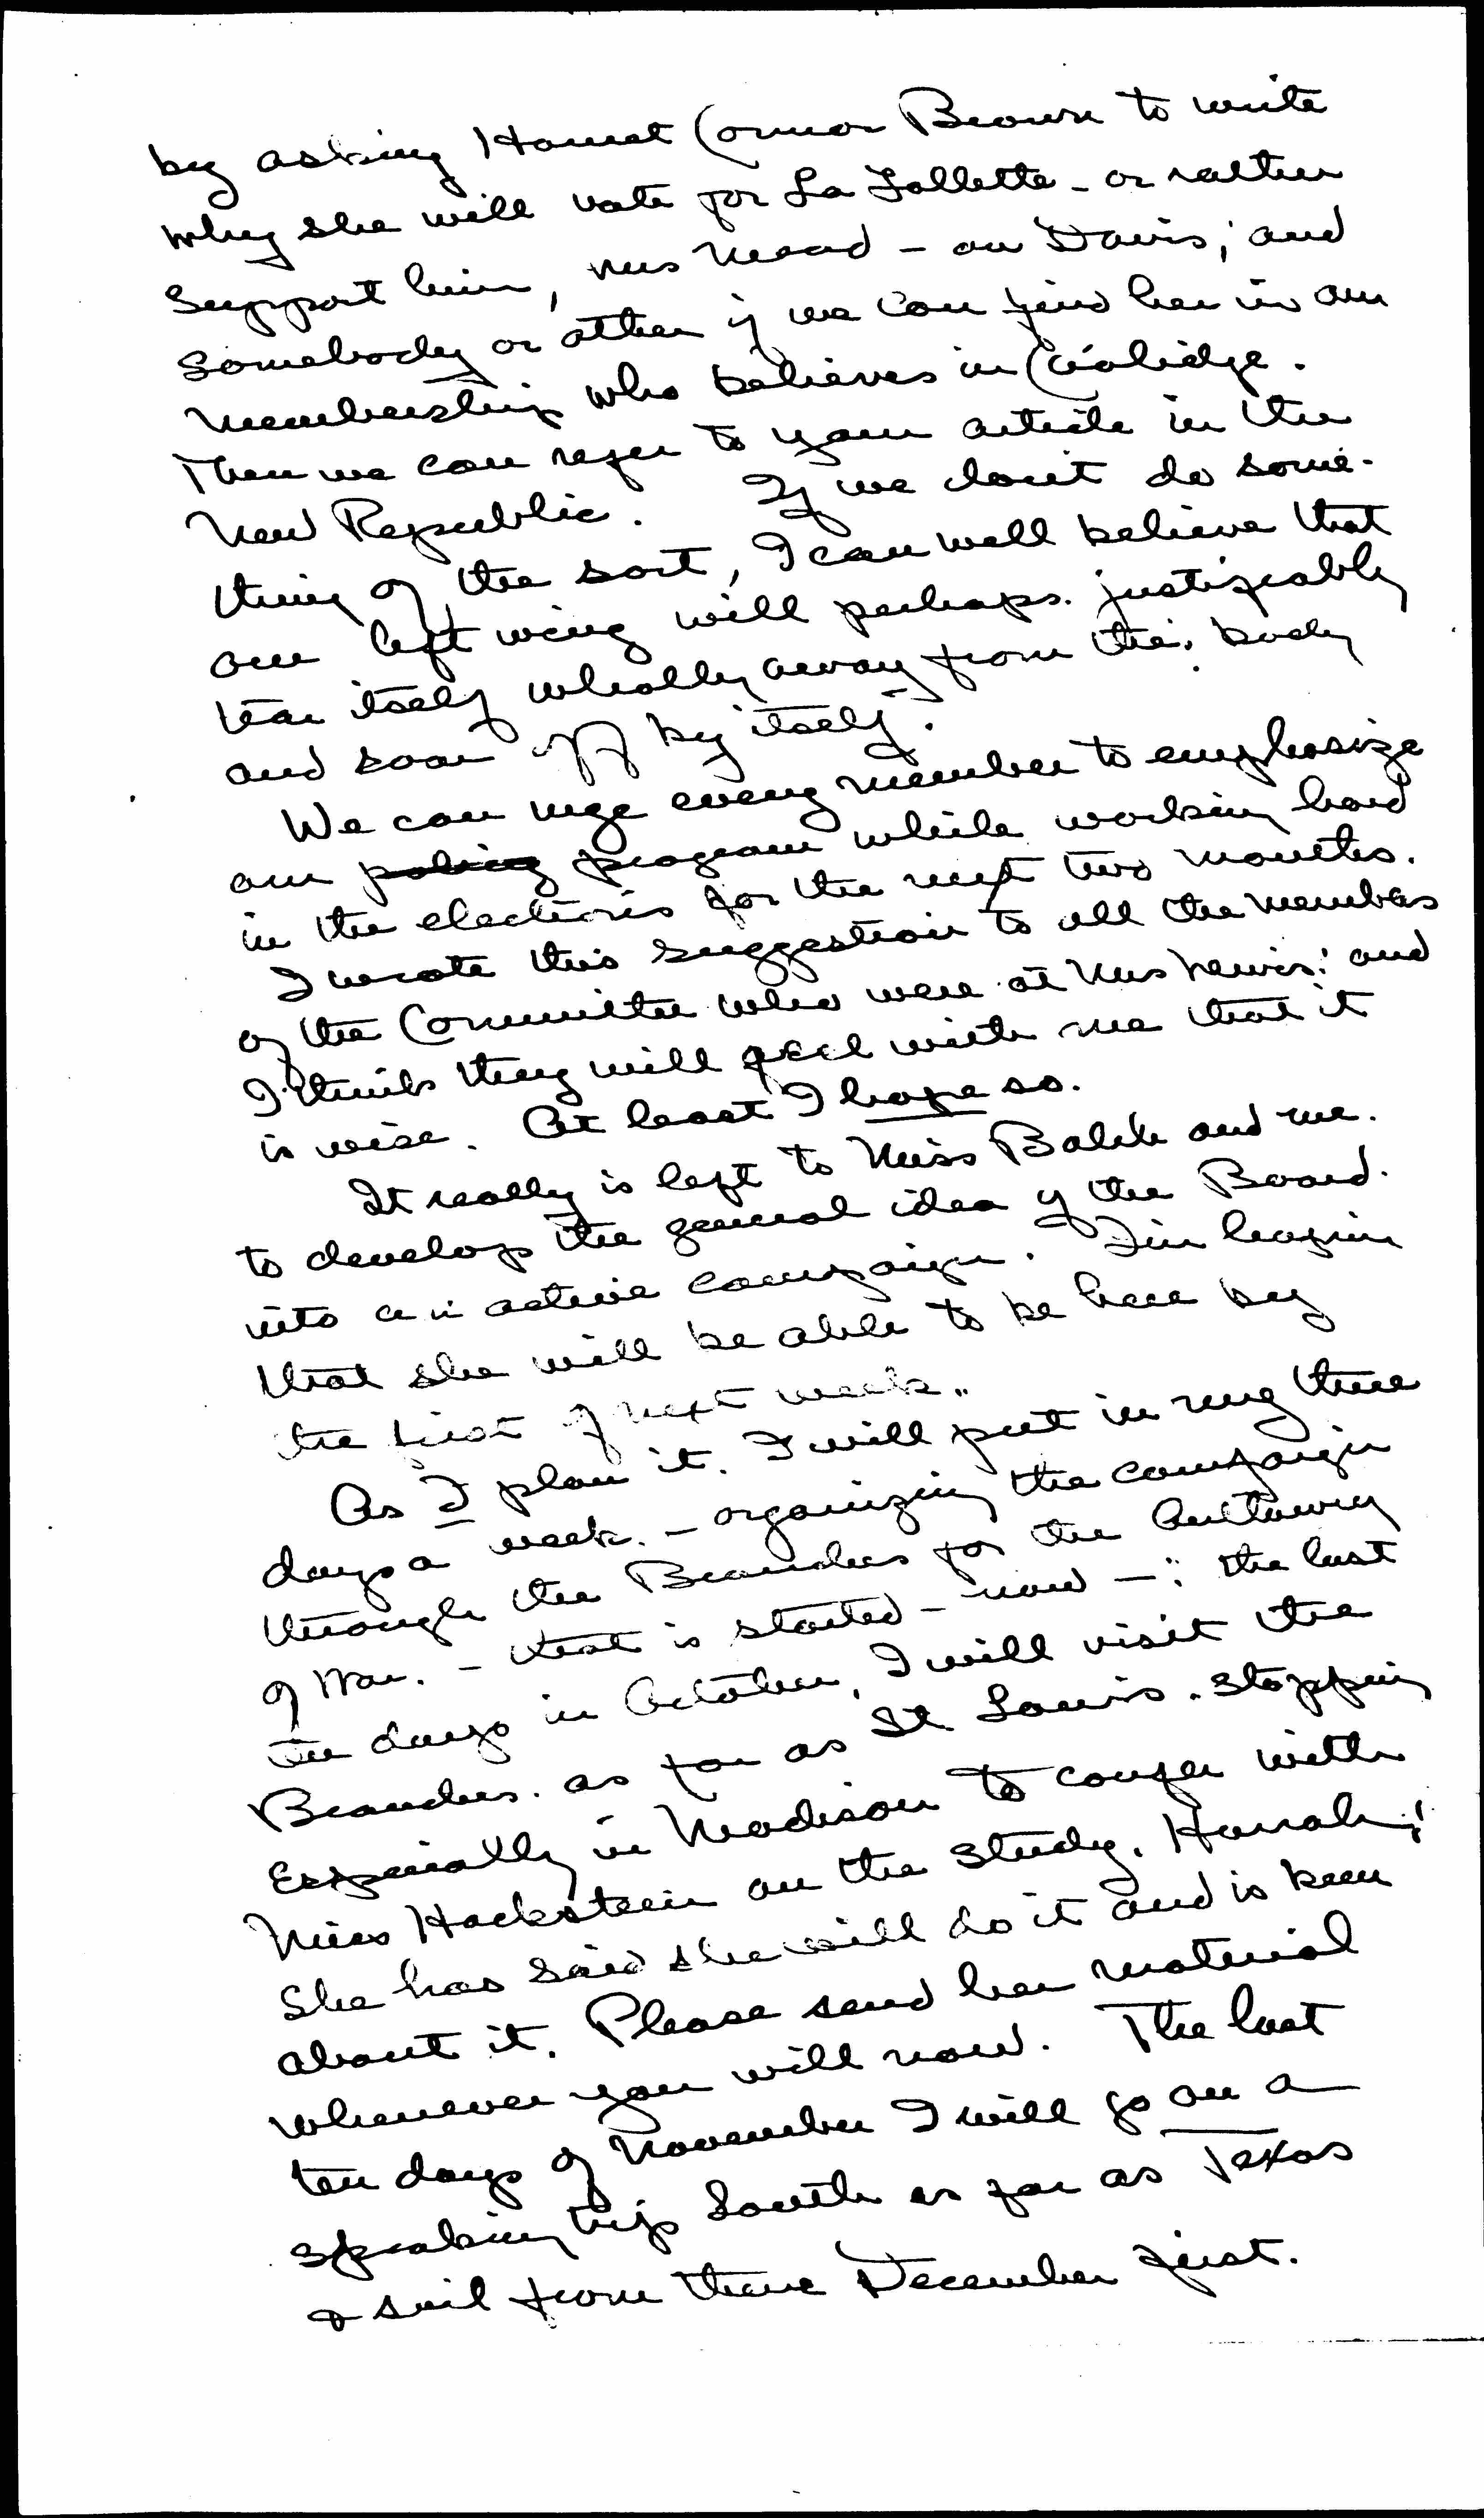 by asking Harriet Connor Brown to write
why she will vote for La Follette - or rather
support him, Mrs Mead - on Davis; and
somebody or other if we can find her in our
membership who believes in Coolidge.
Then we can refer to your article in the
New Republic. If we don't do some-
thing of the sort, I can well believe that
our left wing will perhaps. justifiably
tear itself wholly away from the body
and soar off by itself.
We can urge every member to emphasize
our policy program while working hard
in the elections for the next two months.
I wrote this suggestion to all the members
of the Committee who were at Mrs Lewis: and
I think they will feel with me that it
is wise. At least I hope so.
It really is left to Miss Balch and me.
to develop the general idea of the Board.
into an active campaign. I'm hoping
that she will be able to be here by
the first of next week.
As I plan it. I will put in my three
days a week. - organizing the campaign
through the Branches for the Outlawry
of War. - that is started - now -: the last
ten days in October, I will visit the
Branches. as far as St. Louis. stopping
especially in Madison to confer with
Miss Hackstein on the study. Hurrah!
She has said she will do it and is keen
about it. Please send her material
whenever you will now. The last
ten days of November I will go on a
speaking trip South as far as Texas
& sail from there December first.